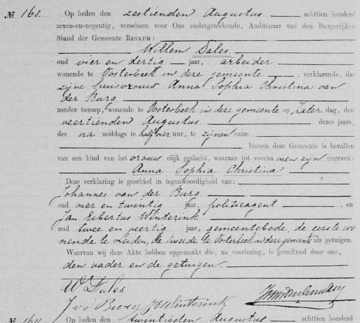 No. 163. Op heden den zestienden Augustus achttien honderd
zeven-en-negentig, verscheen voor Ons ondergeteekende, Ambtenaar van den Burgerlijken
Stand der Gemeente RENKUM:
Willem Dales
oud vier en dertig jaar, arbeider
wonende te Oosterbeek in deze gemeente, verklarende, dat
zijne huisvrouw Anna Sophia Christina van
der Burg
zonder beroep, wonende te Oosterbeek in deze gemeente op Zaterdag, den
veertienden Augustus dezes jaars,
des na middags te half uur, te zijnen
binnen deze Gemeente is bevallen
van een kind van het vrouwelijk geslacht, waaraan tot voornamen zijn gegeven:
Anna Sophia Christina
Deze verklaring is geschied in tegenwoordigheid van:
Johannes van der Burg
oud vier en twintig jaar, politieagent en
Jan Elbertus Winterink
oud twee en veertig jaar, gemeentebode, de eerste wo
nende te Leiden, de tweede te Oosterbeek in deze gemeente als getuigen.
Waarvan wij deze Akte hebben opgemaakt die, na voorlezing, is geteekend door ons,
den vader en de getuigen.
W Dales
J v d Burg J E Winterink
No. 164. Op heden den twintigsten Augustus achttien honderd